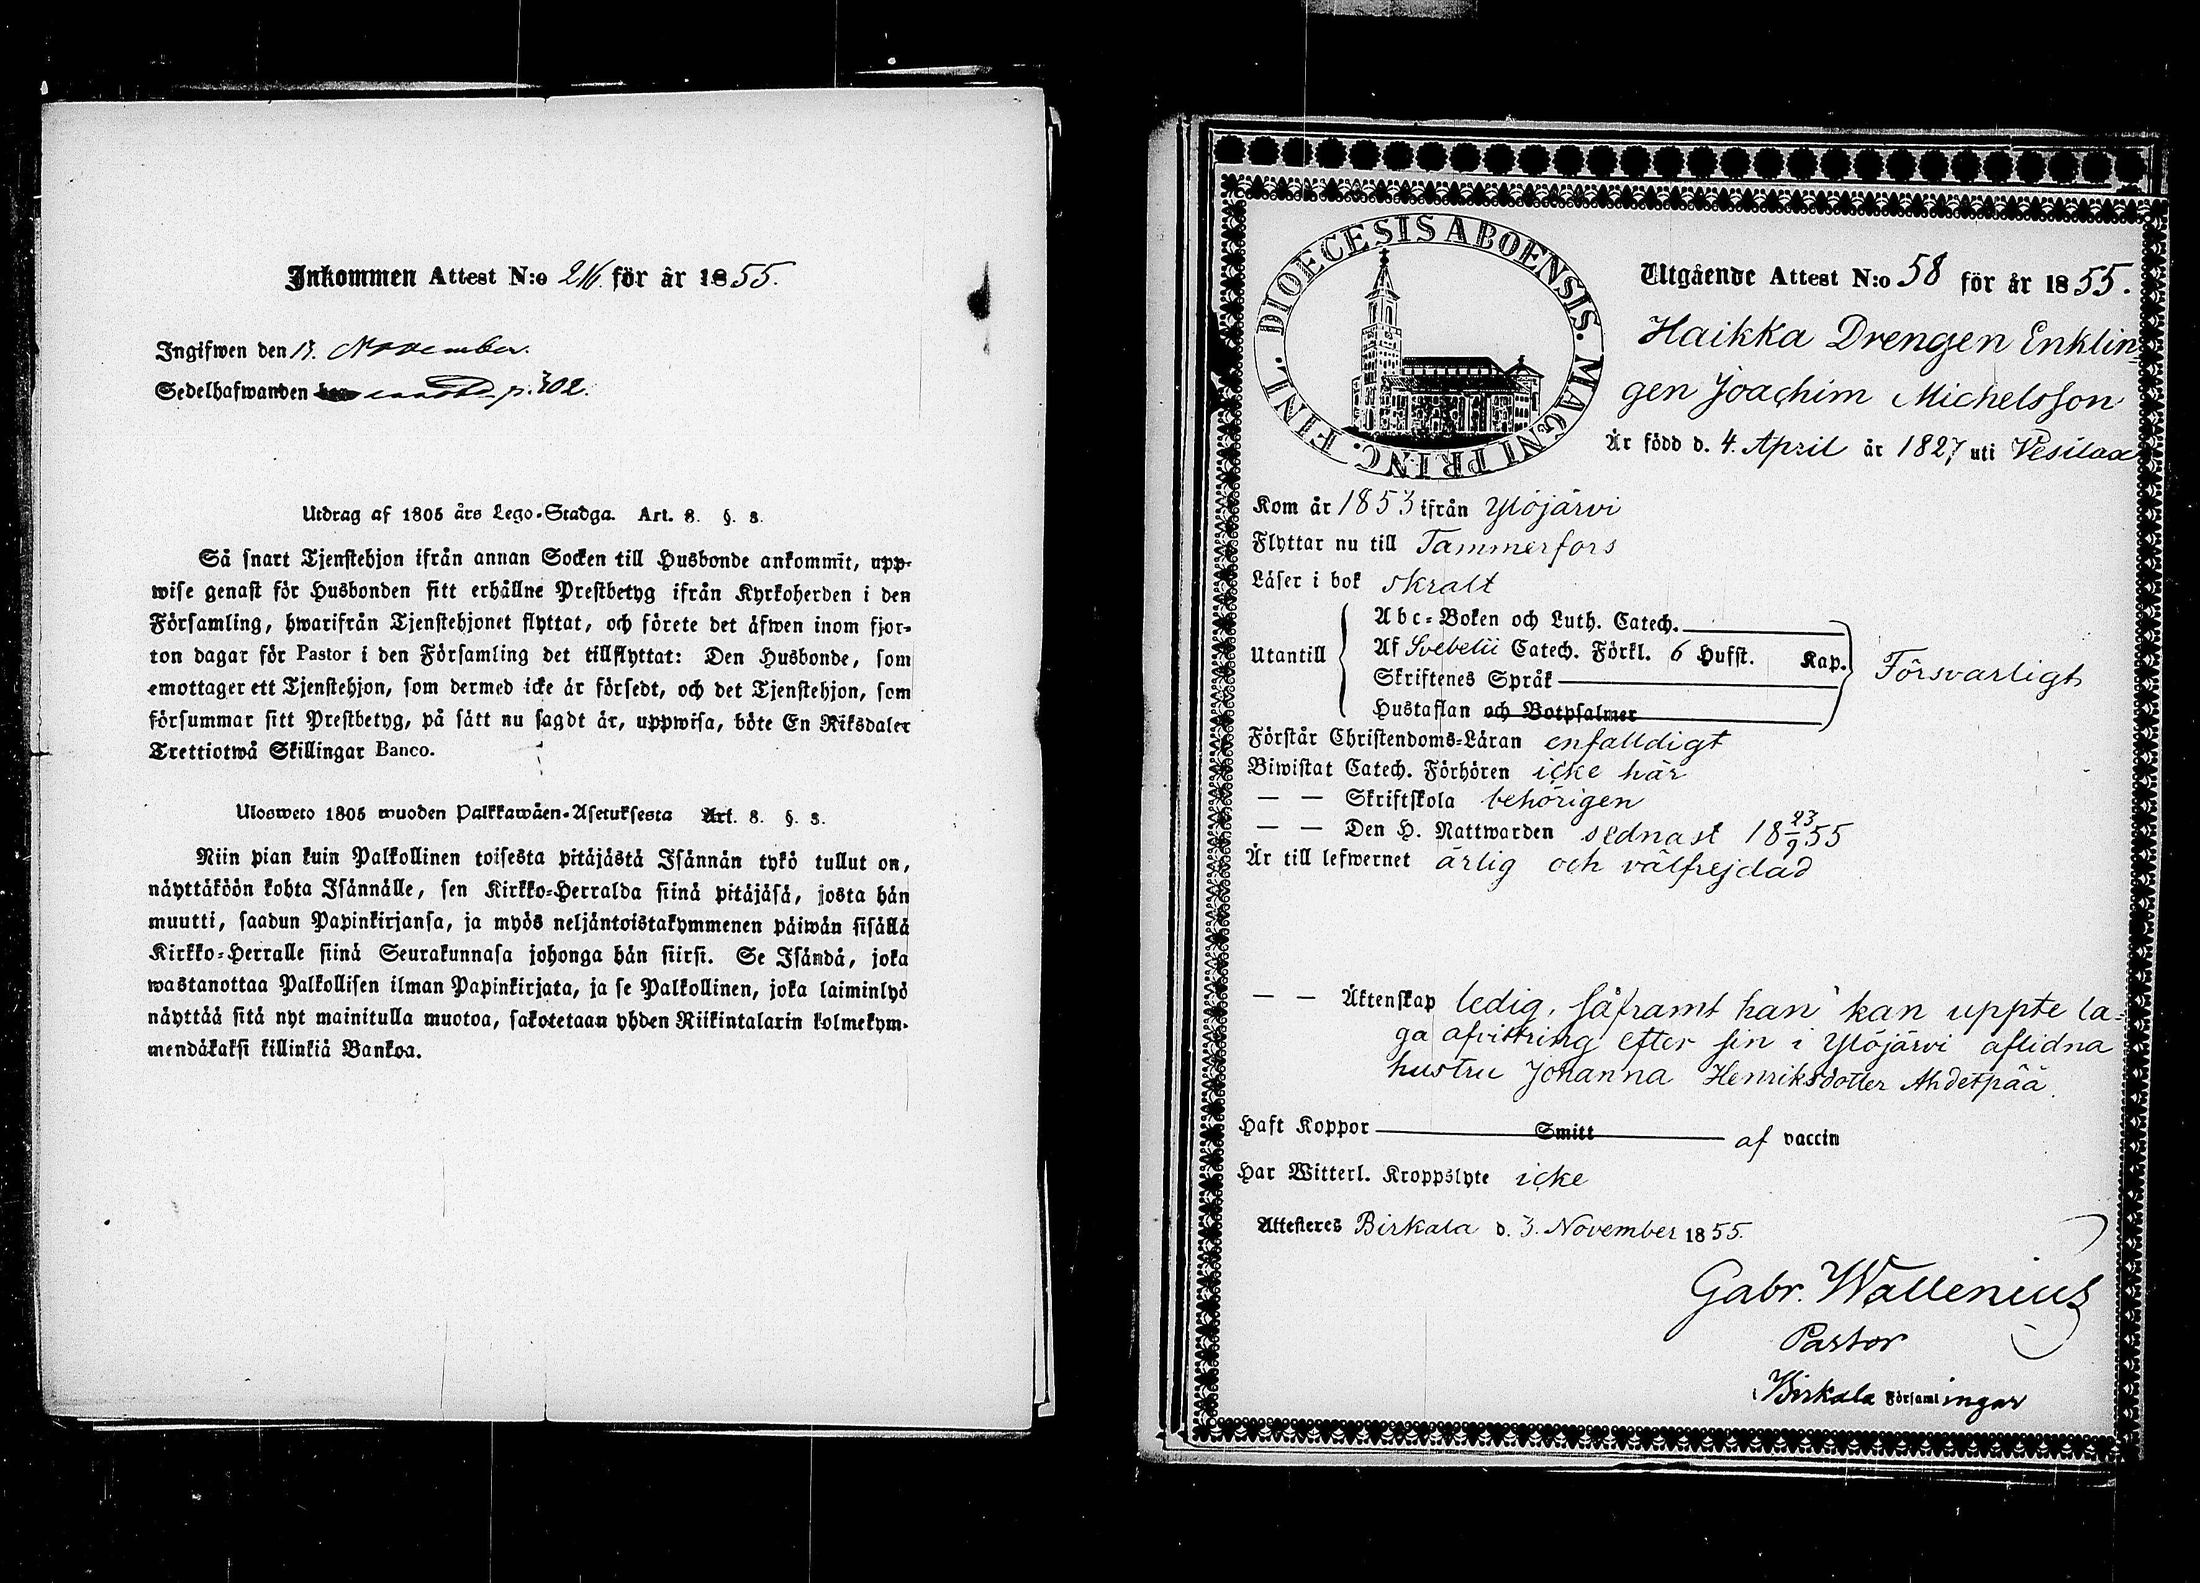 Inkommen Attest N:o för år 1855.
Ingifwen den November.
Sedelhafwanden p. 702.
Utdrag af 1805 års Lego-Stadga. Art. 8. §. 3.
Så snart Tjenstehjon ifrån annan Socken till Husbonde ankommit, upp-
wise genast för Husbonden sitt erhållne Prestbetyg ifrån Kyrkoherden i den
Församling, hwarifrån Tjenstehjonet flyttat, och förete det äfwen inom fjor-
ton dagar för Pastor i den Församling det tillflyttat: Den Husbonde, som
emottager ett Tjenstehjon, som dermed icke är försedt, och det Tjenstehjon, som
försummar sitt Prestbetyg, på sätt nu sagdt är, uppwisa, böte En Riksdaler
Trettiotwå Skillingar Banco.
Ulosweto 1805 wuoden Palkkawäen-Asetuksesta Art. 8. §. 3.
Niin pian kuin Palkollinen toisesta pitäjästä Isännän tykö tullut on,
näyttäköön kohta Isännälle, sen Kirkko-Herralda siinä pitäjäsä, josta hän
muutti, saadun Papinkirjansa, ja myös neljäntoistakymmenen päiwän sisällä
Kirkko-Herralle siinä Seurakunnasa johonga hän siirsi. Se Isändä, joka
wastanottaa Palkollisen ilman Papinkirjata, ja se Palkollinen, joka laiminlyö
näyttää sitä nyt mainitulla muotoa, sakotetaan yhden Riikintalarin kolmekym-
mendäkaksi killinkiä Bankoa.
DIOECESIS ABOENSIS. MAGNI PRINC. FINL.
Utgående Attest N:o 58 för år 1855.
Haikka Drengen Enklin-
gen Joachim Michelsson
Är född d. 4. April år 1827 uti Vesilax
Kom år 1853 ifrån Ylöjärvi
Flyttar nu till Tammerfors
Läser i bok skralt
Abc-Boken och Luth. Catech.
Utantill Af Svebelii Catech. Förkl. 6 Hufst. Kap. Försvarligt
Skriftenes Språk
Hustaflan och Botpsalmer
Förstår Christendoms-Läran enfalldigt
Biwistat Catech. Förhören icke här
— — Skriftskola behörigen
— — Den H. Nattwarden sednast 18 23/9 55
Är till lefwernet ärlig och välfrejdad
— — Äktenskap ledig, såframt han kan uppte la-
ga afvittring efter sin i Ylöjärvi aflidna
hustru Johanna Henriksdotter Ahdetpää.
Haft Koppor Smitt af vaccin
Har Witterl. Kroppslyte icke
Attesteres Birkala d. 3. November 1855.
Gabr. Wallenius
Pastor
i Birkala Församlingar